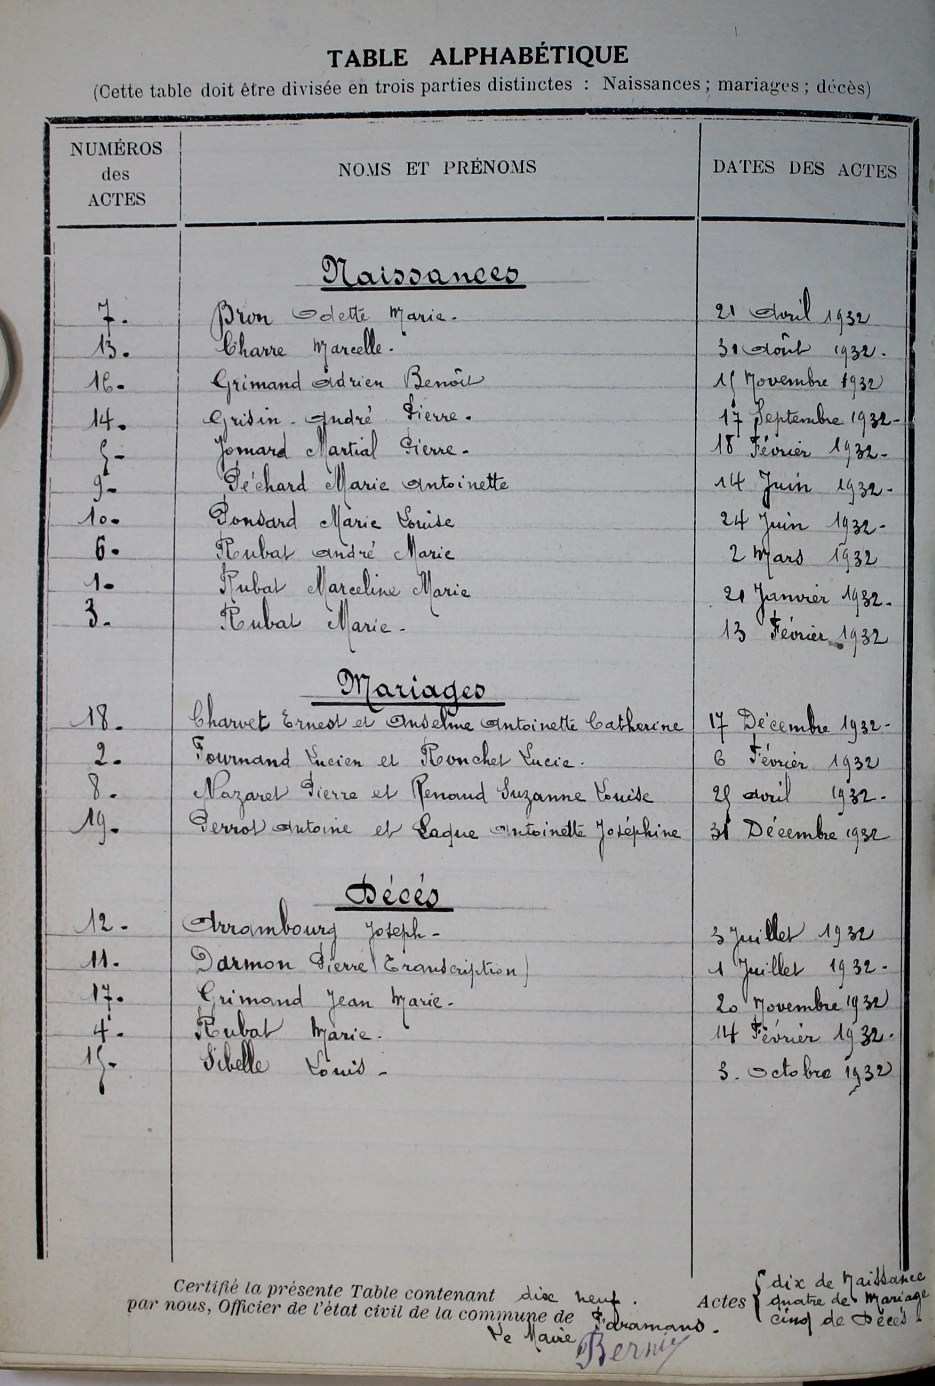 TABLE ALPHABÉTIQUE
(Cette table doit être divisée en trois parties distinctes : Naissances ; mariages ; décès)
NUMÉROS des ACTES NOMS ET PRÉNOMS DATES DES ACTES
Naissances
7. Bron Odette Marie. 21 Avril 1932
13. Charre Marcelle. 31 Août 1932.
16. Grimand Adrien Benoît 15 Novembre 1932
14. Grisin. André Pierre. 17 Septembre 1932-
5- Jomard Martial Pierre. 18 Février 1932-
9- Péchard Marie Antoinette 14 Juin 1932-
10. Ponsard Marie Louise 24 Juin 1932-
6. Rubat André Marie 2 Mars 1932
1. Rubat Marceline Marie 21 Janvier 1932.
3. Rubat Marie. 13 Février 1932
Mariages
18. Charvet Ernest et Anselme Antoinette Catherine 17 Décembre 1932-
2. Fournand Lucien et Ronchet Lucie. 6 Février 1932
8. Nazaret Pierre et Renaud Suzanne Louise 25 Avril 1932.
19. Perrot Antoine et Laque Antoinette Joséphine 31 Décembre 1932
Décés
12. Arrambourg Joseph- 3 Juillet 1932
11. Darmon Pierre (Transcription) 1 Juillet 1932.
17. Grimand Jean Marie. 20 Novembre 1932
4. Rubat Marie. 14 Février 1932.
15- Sibelle Louis - 3. Octobre 1932
Certifié la présente Table contenant dix neuf. Actes { dix de Naissance
par nous, Officier de l'état civil de la commune de Faramans. quatre de Mariage
Le Maire cinq de Décés.